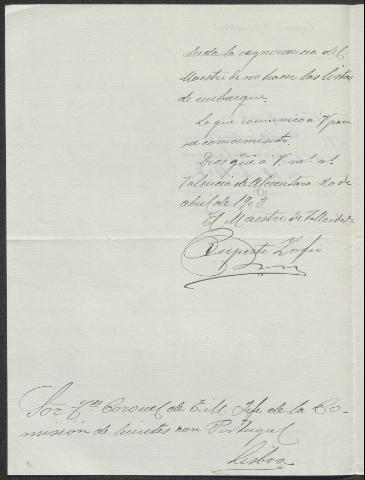 deuda la ignorancia del
Maestro de no hacer las listas
de embarque.
Lo que comunico a V para
su conocimiento.
Dios gue a V. ms. as.
Valencia de Alcantara 20 de
Abril de 1903
El Maestro de
Ruperto Zafio
Sor Coronel de E. M. Jefe de la Co-
misión de límites con Portugal
Lisboa